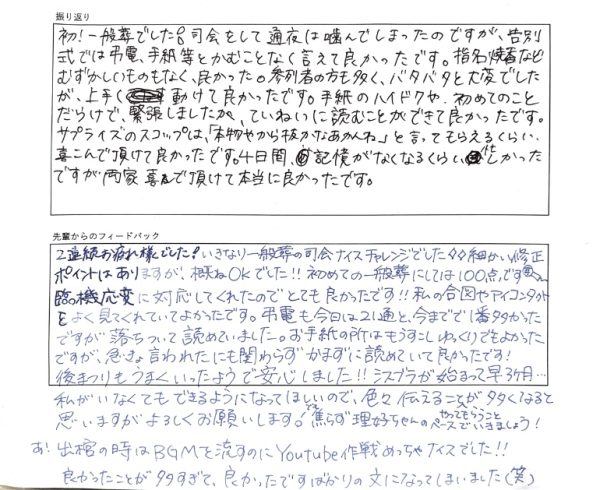 振り返り
初！一般葬でした！司会をして通夜は噛んでしまったのですが、告別
式では弔電、手紙等とかむことなく言えて良かったです。指名焼香など
むずかしいものもなく、良かった。参列者の方も多く、バタバタと大変でした
が、上手く動けて良かったです。手紙のハイドクや、初めてのこと
だらけで、緊張しましたが、ていねいに読むことができて良かったです。
サプライズのスコップは、「本物やから抜かなあかんね」と言ってもらえるくらい、
喜こんで頂けて良かったです。4日間、記憶がなくなるくらい、忙しかった
ですが両家喜んで頂けて本当に良かったです。
先輩からのフィードバック
2連続お疲れ様でした！いきなり一般葬の司会ナイスチャレンジでした 細かい修正
ポイントはありますが、概ねOKでした!!初めての一般葬にしては100点です
臨機応変に対応してくれたのでとても良かったです!!私の合図やアイコンタクト
をよく見てくれていてよかったです。弔電も今日は21通と、今までで1番多かった
ですが落ちついて読めていました。お手紙の所はもうすこしゆっくりでもよかった
ですが、急きょ言われたにも関わらずかまずに読めていて良かったです！
後まつりもうまくいったようで安心しました!!シスプラが始まって早3ヶ月…
私がいなくてもできるようになってほしいので、色々伝えることが多くなると
思いますがよろしくお願いします。焦らず理好ちゃんのペースでやってもらうことでいきましょう！
お！出棺の時はBGMを流すのにYoutube作戦めっちゃナイスでした!!
良かったことが多すぎて、良かったですばかりの文になってしまいました(笑)